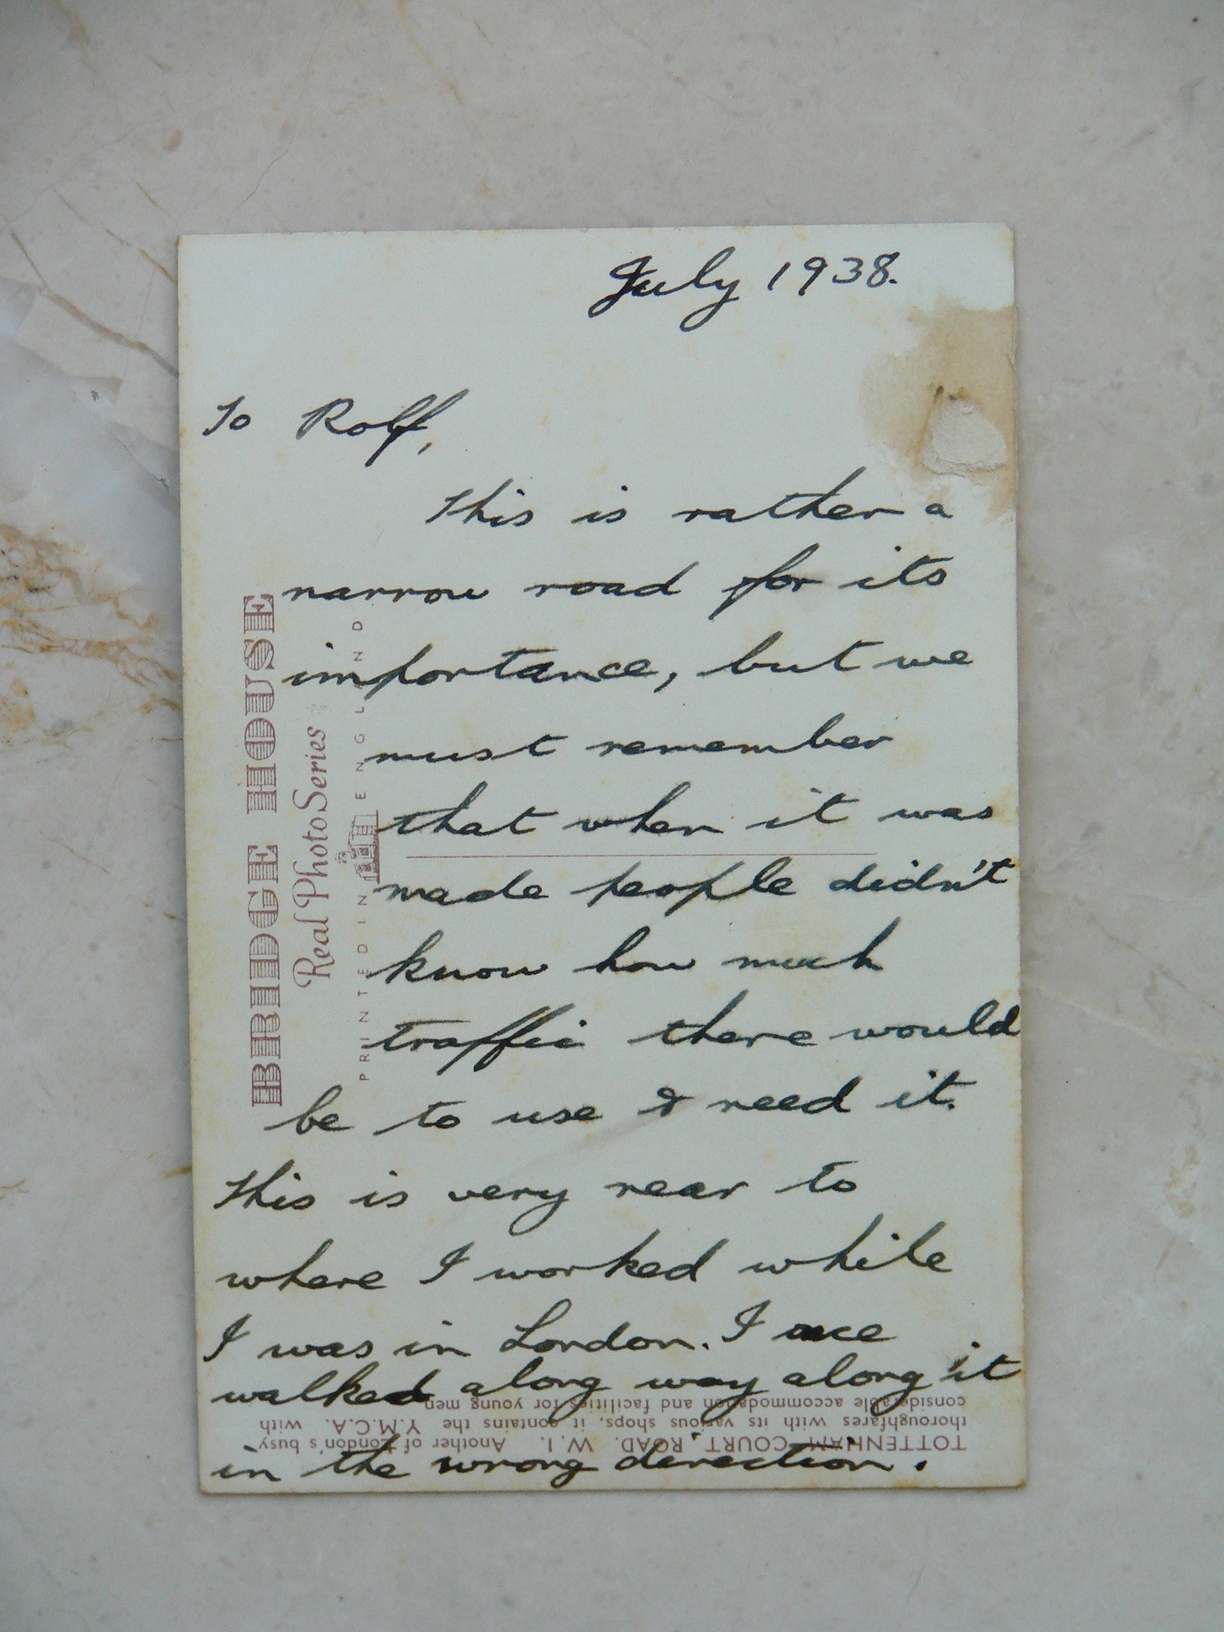 July 1938.
To Rolf,
This is rather a
narrow road for its
importance, but we
must remember
that when it was
made people didn't
know how much
traffic there would
be to use & need it.
This is very near to
where I worked while
I was in London. I once
walked along way along it
in the wrong direction.
BRIDGE HOUSE
Real Photo Series
PRINTED IN ENGLAND
TOTTENHAM COURT ROAD. W.1. Another of London's busy
thoroughfares with its various shops, it contains the Y.M.C.A. with
considerable accommodation and facilities for young men.